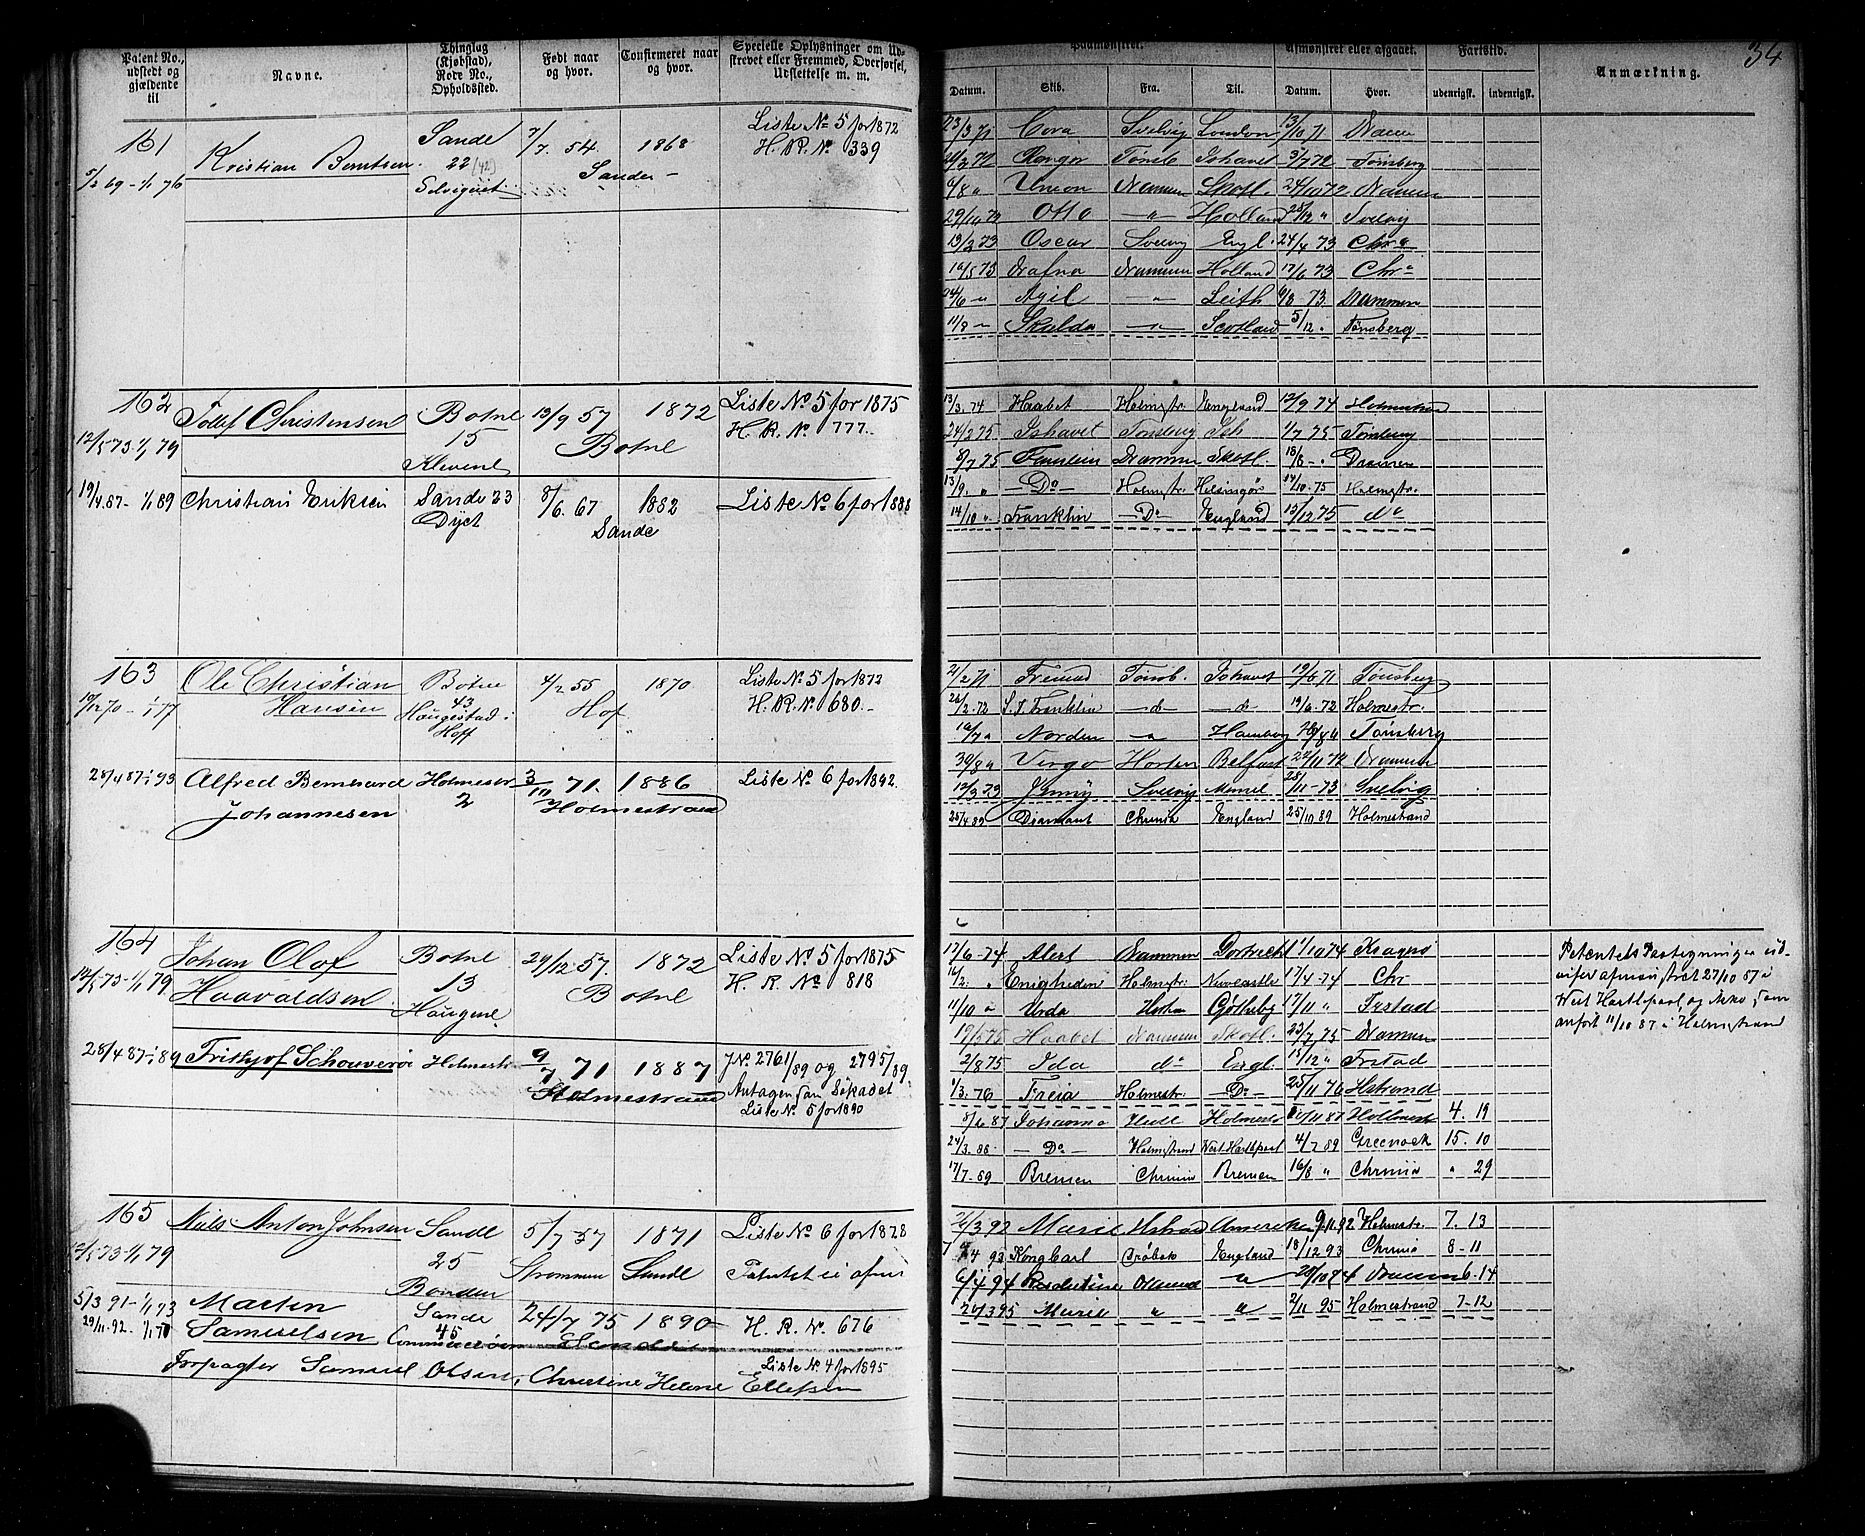 34
Patent No., udstedt og gjældende til
Navne.
Thinglag (Kjøbstad), Rode No., Opholdssted.
Født naar og hvor.
Confirmeret naar og hvor.
Specielle Oplysninger om Udskrevet eller Fremmed, Overførsel, Udslettelse m. m.
161
5/2 69 - 1/1 76
Kristian Berntsen
Sande
22 (42)
Selvigvet
7/7. 54.
1868
Sande
Liste No 5 for 1872
H. R. No 339
162
12/5 73. 1/1 79
Tollef Christensen
Botne
15
Klevene
13/9 57
1872
Botne
Liste No 5 for 1875
H. R. No 777.
19/4 87 - 1/1 89
Christian Eriksen
Sande 23
8/6. 67
1882
Sande
Liste No 6 for 1888
163
Ole Christian
Hansen
Botne
43
Haugestad i
Hoff
4/2 55
1870
Hof
Liste No 5 for 1872
H. R. No 680.
28/4 87 1/1 93
Alfred Bernhard
Johannesen
Holmestr
2
3/10 71.
1886
Holmestrand
Liste No 6 for 1892.
164
14/5 73 - 1/1 79
Johan Olof
Haavaldsen
Botne
13
Haugene
29/12. 57.
1872
Botne
Liste No 5 for 1875
H. R. No 818
28/4 87 1/1 89
Frithjof Schouverø
Holmestr
9/7 71
1887
Holmestrand
J. No. 2761/89 og 2795/89.
Antagen som Søkadet
Liste No. 5 for 1890
165
12/5 73 - 1/1 79
Niels Anton Johnsen
Sande
25
Bonden
5/7 57
Strømmen
1871
Sande
Liste No 6 for 1878
5/3 91 - 1/1 93
29/11. 92.
Martin
Samuelsen
Sande
45
24/7 75
1890
H. R. No. 676
Liste No. 4 for 1895
Samuel Olsen, Christine Helene Ellefsen
Paamønstret.
Afmønstret eller afgaaet.
Fartstid.
Anmærkning.
Datum. Skib. Fra. Til. Datum. Hvor. udenrigsk. indenrigsk.
23/3 71 Cora Svelvig London 13/10 71 Dramm
Tønsb Ishavet 3/7 72 Tønsberg
6/8 " Union Drammen Skotl. 24/10 72 Drammen
29/10 72 Otto " Holland 28/12 " Svelvig
13/2 73 Oscar Svelvig Engl. 24/4 73 Chra
16/5 73 Drafna Drammen Holland 17/6 73 Chra
24/6 " Agil " Leith 9/8 73 Drammen
11/9 " Skulda " Scotland 5/12 . Tønsberg
13/3. 74 Haabet Holmstr. England 12/9 74 Holmestrand
24/2 75 Ishavet Tønsberg Ish 1/7 75 Tønsberg
8/7 75 Drammen Skotl. 18/8 " Drammen
13/9. " Do Holmstr. Helsingør 14/10. 75 Holmstr.
14/10 " Franklin Do England 15/12 75 do
21/2 71 Fremad Tønsb. Ishavet 19/6 71 Tønsberg
26/2. 72 S. S. Franklin do do 19/6. 72 Holmestr.
16/7 " Norden " Hamborg Tønsberg
30/8 " Virgo Horten Belfast 22/11 72 Drammen
12/3 73 Jenny Svelvig 28/11 - 73 Svelvig
25/4 89 Diamant Chrnia England 25/10 89 Holmestrand
17/6 - 74 Alert Drammen Dortrecht 1/10 74 Kragerø
Enigheden Holmstr. Newcastle 17/4 - 74 Chr
11/10 " Urda Horten Gøtheby 17/11 " Frstad
19/5 75 Haabet Drammen Skotl. 23/7 75 Drammen
2/8 75 Ida do Engl. 15/12 " Frstad
1/3. 76 Freia Holmestr. Do 25/11 76 Hstrand
8/6 87 Johanna Holmestr 87 4. 19
24/3. 88 Do Holmstrand West Hartlepool 4/7 89 Greenock 15. 10
17/7 - 89 Bremen Chrnia Bremen 16/8 " Chrnia " 29
Marie America 9.11.92 Holmestr. 7. 13
93 Kong Carl Drøbak England 18/12 93 Chrnia 8 - 11
94 " Drammen 6. 14
26/3 95 Marie " " 2/11 95 Holmestrand 7 - 12
Patentets Paategninger
afmønstret 27/10 87 i
West Hartlepool og ikke som
anført 11/10 87 i Holmstrand